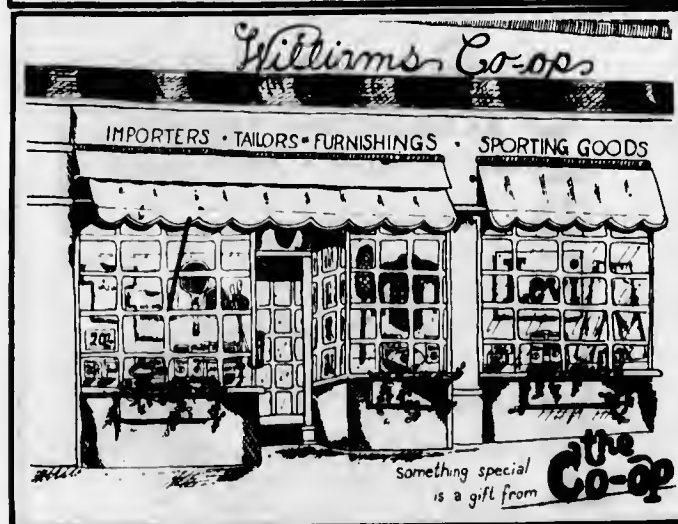 Williams Co-op
IMPORTERS • TAILORS • FURNISHINGS • SPORTING GOODS
20%
something special
is a gift from
the
Co-op